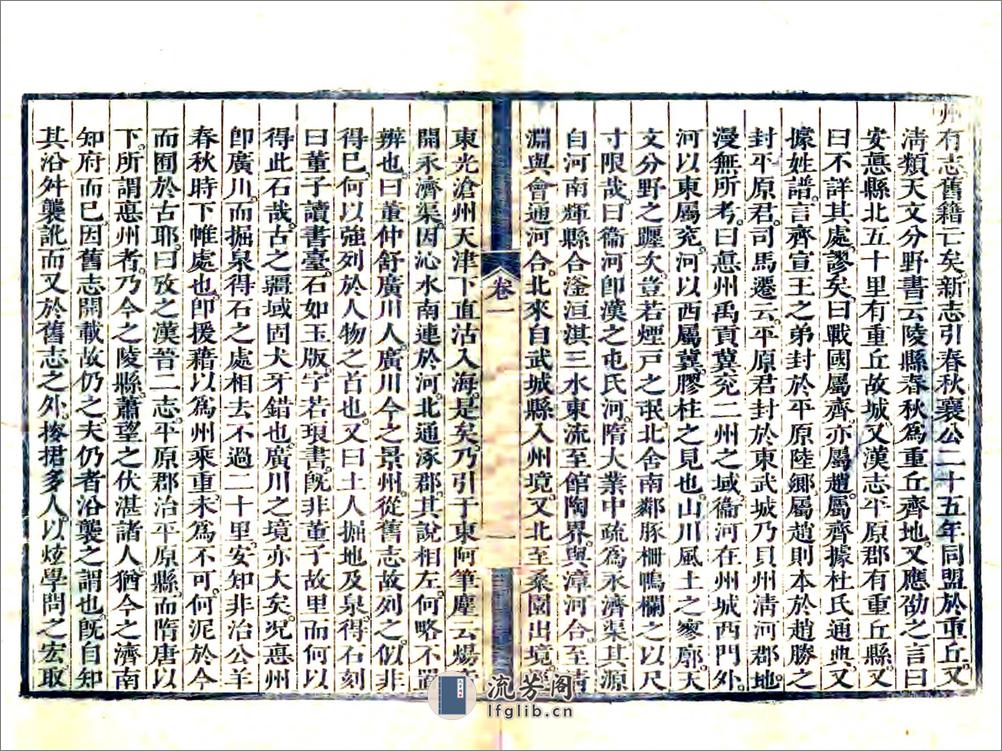 州有志舊籍亡矣新志引春秋襄公二十五年同盟於重丘又
清類天文分野書云陵縣春秋為重丘齊地又應劭之言曰
安悳縣北五十里有重丘故城又漢志平原郡有重丘縣又
曰不詳其處謬矣曰戰國屬齊亦屬趙屬齊據杜氏通典又
據姓譜言齊宣王之弟封於平原陸鄉屬趙則本於趙勝之
封平原君司馬遷云平原君封於東武城乃貝州清河郡地
漫無所考曰悳州禹貢冀兖二州之域衞河在州城西門外
河以東屬兖河以西屬冀膠柱之見也山川風土之寥廓天
文分野之躔次豈若煙戶之氓北舍南鄰豚柵鳴欄之以尺
寸限哉曰衞河卽漢之屯氏河隋大業中疏為永濟渠其源
自河南輝縣合滏洹淇三水東流至館陶界與漳河合至
淵與會通河合北來自武城縣入州境又北至桑園出境
東光滄州天津下直沽入海是矣乃引于東阿筆麈云煬
開永濟渠因沁水南連於河北通涿郡其說相左何略不置
辨也曰董仲舒廣川人廣川今之景州從舊志故列之似非
得已何以強列於人物之首也又曰土人掘地及泉得石刻
曰董子讀書臺石如玉版字若琅書旣非董子故里而何以
得此石哉古之疆域固犬牙錯也廣川之境亦大矣况悳州
卽廣川而掘泉得石之處相去不過二十里安知非治公羊
春秋時下帷處也卽援藉以為州乘重未為不可何泥於今
而囿於古耶曰攷之漢晉二志平原郡治平原縣而隋唐以
下所謂悳州者乃今之陵縣蕭望之伏湛諸人猶今之濟南
知府而已因舊志開載故仍之夫仍者沿襲之謂也旣自知
其沿舛襲訛而又於舊志之外捃多人以炫學問之宏取
卷一
一
流芳阁
lfglib.cn